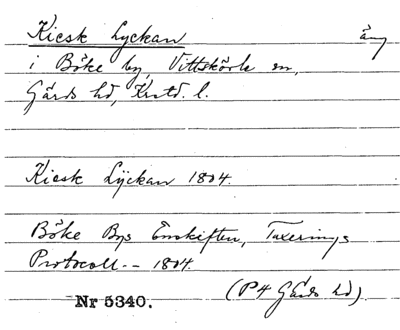 Kiesk Lyckan äng
i Böke by, Vittskövle sn,
Gärds hd, Krstd. l.
Kiesk Lÿckan 1804.
Böke Bys Enskiften, Taxerings
Protocoll -- 1804.
(P4 Gärds hd).
Nr 5340.